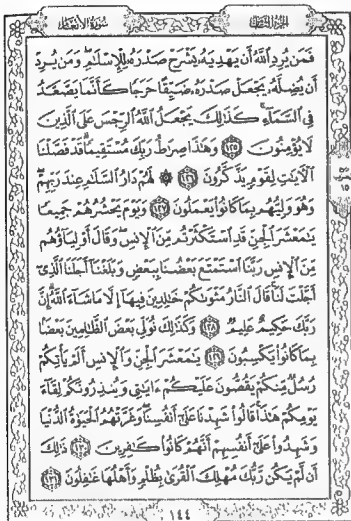 الجزء الثامن
سورة الأنعام
فَمَن يُرِدِ ٱللَّهُ أَن يَهْدِيَهُۥ يَشْرَحْ صَدْرَهُۥ لِلْإِسْلَٰمِ ۖ وَمَن يُرِدْ
أَن يُضِلَّهُۥ يَجْعَلْ صَدْرَهُۥ ضَيِّقًا حَرَجًا كَأَنَّمَا يَصَّعَّدُ
فِى ٱلسَّمَآءِ ۚ كَذَٰلِكَ يَجْعَلُ ٱللَّهُ ٱلرِّجْسَ عَلَى ٱلَّذِينَ
لَا يُؤْمِنُونَ ١٢٥ وَهَٰذَا صِرَٰطُ رَبِّكَ مُسْتَقِيمًا ۗ قَدْ فَصَّلْنَا
ٱلْءَايَٰتِ لِقَوْمٍ يَذَّكَّرُونَ ١٢٦ ۞ لَهُمْ دَارُ ٱلسَّلَٰمِ عِندَ رَبِّهِمْ ۖ
وَهُوَ وَلِيُّهُم بِمَا كَانُوا۟ يَعْمَلُونَ ١٢٧ وَيَوْمَ يَحْشُرُهُمْ جَمِيعًا
يَٰمَعْشَرَ ٱلْجِنِّ قَدِ ٱسْتَكْثَرْتُم مِّنَ ٱلْإِنسِ ۖ وَقَالَ أَوْلِيَآؤُهُم
مِّنَ ٱلْإِنسِ رَبَّنَا ٱسْتَمْتَعَ بَعْضُنَا بِبَعْضٍ وَبَلَغْنَآ أَجَلَنَا ٱلَّذِىٓ
أَجَّلْتَ لَنَا ۚ قَالَ ٱلنَّارُ مَثْوَىٰكُمْ خَٰلِدِينَ فِيهَآ إِلَّا مَا شَآءَ ٱللَّهُ ۗ إِنَّ
رَبَّكَ حَكِيمٌ عَلِيمٌ ١٢٨ وَكَذَٰلِكَ نُوَلِّى بَعْضَ ٱلظَّٰلِمِينَ بَعْضًۢا
بِمَا كَانُوا۟ يَكْسِبُونَ ١٢٩ يَٰمَعْشَرَ ٱلْجِنِّ وَٱلْإِنسِ أَلَمْ يَأْتِكُمْ
رُسُلٌ مِّنكُمْ يَقُصُّونَ عَلَيْكُمْ ءَايَٰتِى وَيُنذِرُونَكُمْ لِقَآءَ
يَوْمِكُمْ هَٰذَا ۚ قَالُوا۟ شَهِدْنَا عَلَىٰٓ أَنفُسِنَا ۖ وَغَرَّتْهُمُ ٱلْحَيَوٰةُ ٱلدُّنْيَا
وَشَهِدُوا۟ عَلَىٰٓ أَنفُسِهِمْ أَنَّهُمْ كَانُوا۟ كَٰفِرِينَ ١٣٠ ذَٰلِكَ
أَن لَّمْ يَكُن رَّبُّكَ مُهْلِكَ ٱلْقُرَىٰ بِظُلْمٍ وَأَهْلُهَا غَٰفِلُونَ ١٣١
١٤٤